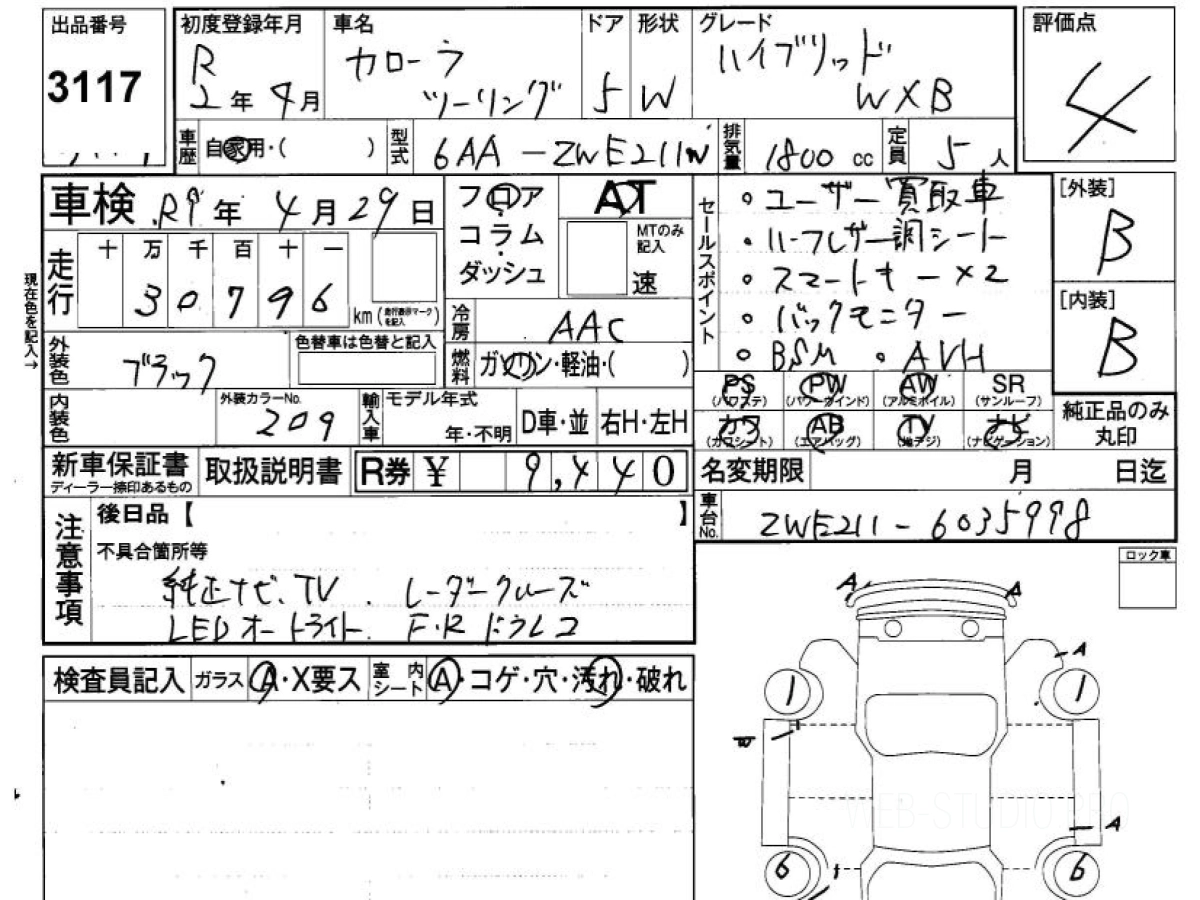 出品番号
3117
初度登録年月
R
2年4月
車名
カローラ
ツーリング
ドア
5
形状
W
グレード
ハイブリッド
WXB
評価点
4
車歴
自家用・( )
型式
6AA-ZWE211W
排気量
1800 cc
定員
5人
車検 R9年 4月29日
走行
十 万 千 百 十 一
3 0 7 9 6
km (走行表示マークを記入)
現在色を記入→
フロア
コラム
ダッシュ
AT
MTのみ記入
速
冷房
AAC
燃料
ガソリン・軽油・( )
外装色
ブラック
色替車は色替と記入
内装色
外装カラーNo.
209
輸入車
モデル年式
年・不明
D車・並
右H・左H
セールスポイント
・ユーザー買取車
・ハーフレザー調シート
・スマートキー×2
・バックモニター
・BSM ・AVH
[外装]
B
[内装]
B
PS
(パワステ)
PW
(パワーウインド)
AW
(アルミホイル)
SR
(サンルーフ)
カワ
(カワシート)
AB
(エアバッグ)
TV
(地デジ)
ナビ
(ナビゲーション)
純正品のみ
丸印
新車保証書
ディーラー捺印あるもの
取扱説明書
R券 ¥ 9,440
名変期限 月 日迄
車台No.
ZWE211-6035998
注意事項
後日品【 】
不具合箇所等
純正ナビ、TV、レーダークルーズ
LEDオートライト、F・Rドラレコ
ロック車
検査員記入
ガラス
A・X要ス
室内シート
A・コゲ・穴・汚れ・破れ
A
A
A
1
1
W
A
6
6
WEB-STUDIO PRO